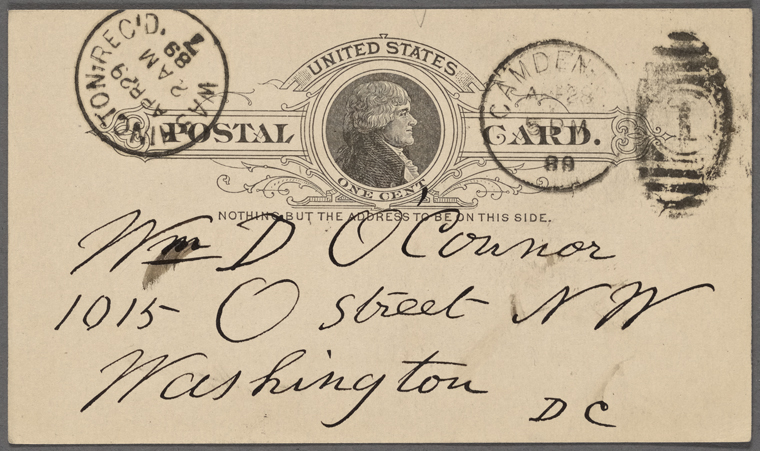 WASHINGTON, REC'D.
APR 29
2 AM
89
7
UNITED STATES
POSTAL CARD.
ONE CENT
CAMDEN
28
5 PM
89
1
NOTHING BUT THE ADDRESS TO BE ON THIS SIDE.
Wm D O'Connor
1015 O Street N W
Washington
D C